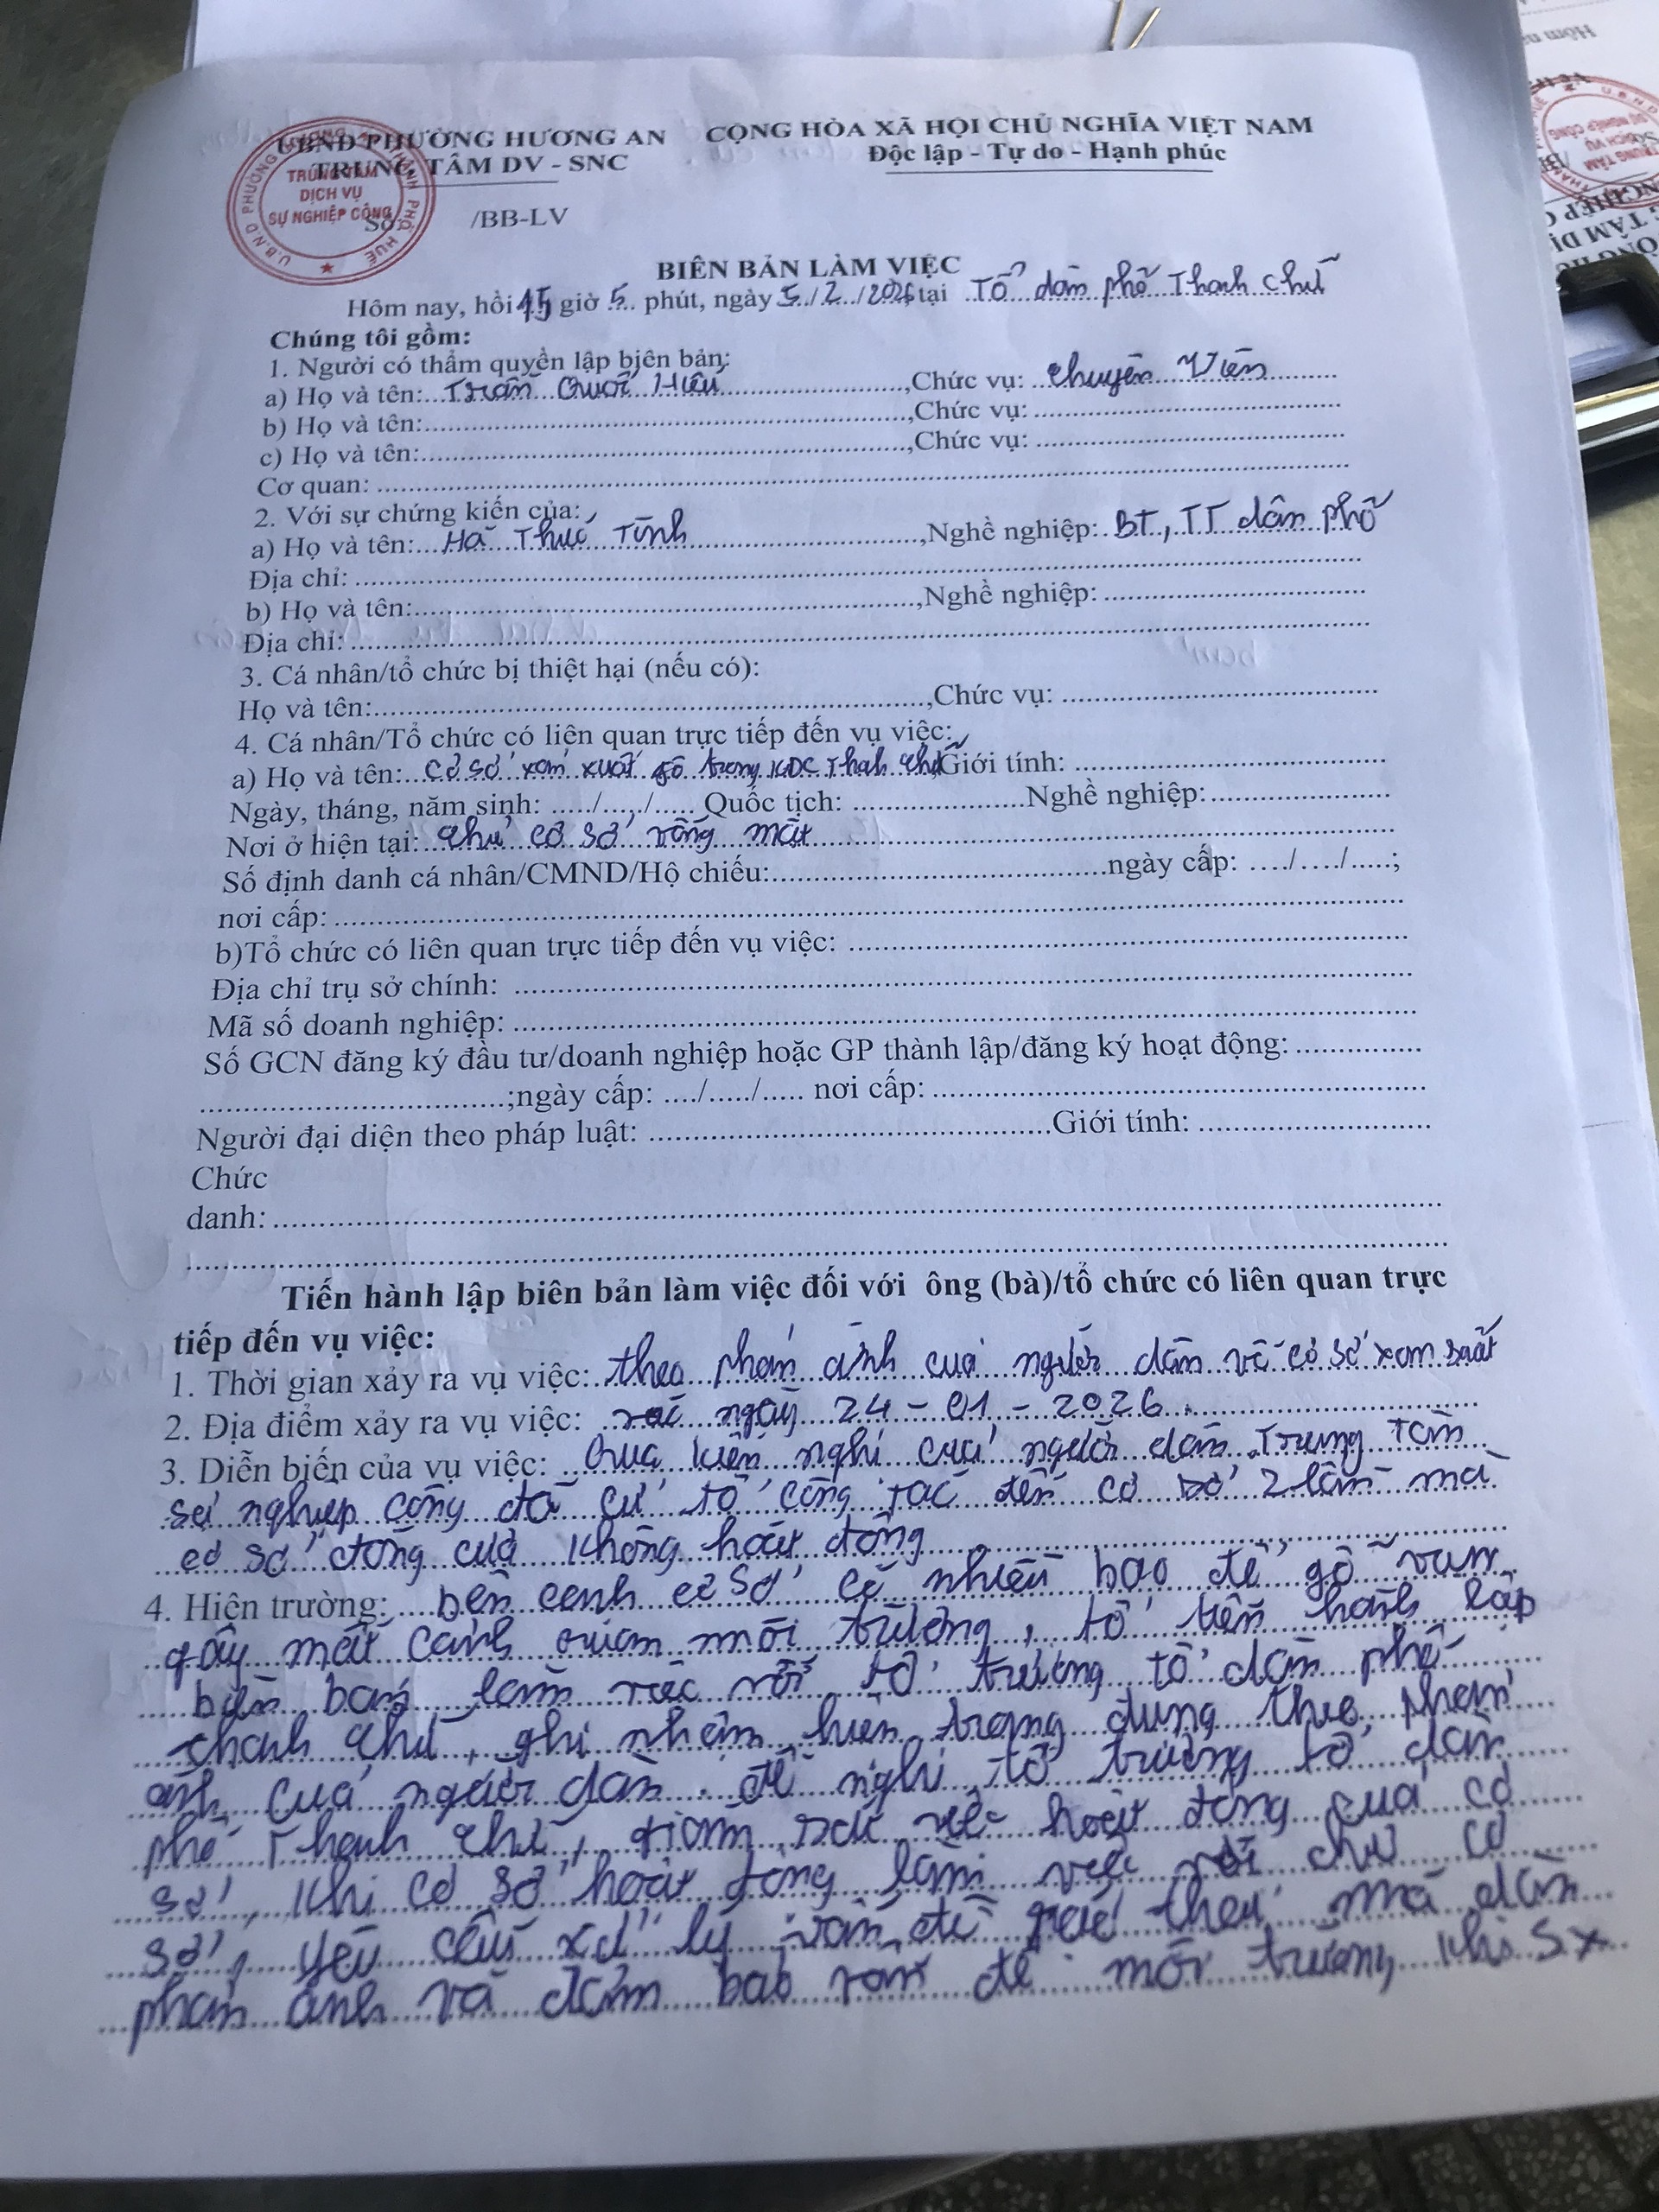 UBND PHƯỜNG HƯƠNG AN
TRUNG TÂM DV - SNC
CỘNG HÒA XÃ HỘI CHỦ NGHĨA VIỆT NAM
Độc lập - Tự do - Hạnh phúc
TRUNG TÂM
DỊCH VỤ
SỰ NGHIỆP CÔNG
Số /BB-LV
BIÊN BẢN LÀM VIỆC
Hôm nay, hồi 15 giờ 5 phút, ngày 5/2/2026 tại Tổ dân phố Thanh Chữ
Chúng tôi gồm:
1. Người có thẩm quyền lập biên bản:
a) Họ và tên: Trần Quốc Hiếu, Chức vụ: chuyên viên
b) Họ và tên:, Chức vụ:
c) Họ và tên:, Chức vụ:
Cơ quan:
2. Với sự chứng kiến của:
a) Họ và tên: Hà Thúc Tĩnh, Nghề nghiệp: BT, TT dân phố
Địa chỉ:
b) Họ và tên:, Nghề nghiệp:
Địa chỉ:
3. Cá nhân/tổ chức bị thiệt hại (nếu có):
Họ và tên:, Chức vụ:
4. Cá nhân/Tổ chức có liên quan trực tiếp đến vụ việc:
a) Họ và tên: cơ sở xản xuất gỗ trong KDC Thanh Chữ Giới tính:
Ngày, tháng, năm sinh: ...../...../..... Quốc tịch: Nghề nghiệp:
Nơi ở hiện tại: chủ cơ sở vắng mặt
Số định danh cá nhân/CMND/Hộ chiếu: ngày cấp: ..../..../.....;
nơi cấp:
b)Tổ chức có liên quan trực tiếp đến vụ việc:
Địa chỉ trụ sở chính:
Mã số doanh nghiệp:
Số GCN đăng ký đầu tư/doanh nghiệp hoặc GP thành lập/đăng ký hoạt động:
;ngày cấp: ..../...../..... nơi cấp:
Người đại diện theo pháp luật: Giới tính:
Chức
danh:
Tiến hành lập biên bản làm việc đối với ông (bà)/tổ chức có liên quan trực
tiếp đến vụ việc:
1. Thời gian xảy ra vụ việc: theo phản ánh của người dân về cơ sở xản suất
2. Địa điểm xảy ra vụ việc: ngày 24-01-2026.
3. Diễn biến của vụ việc: Qua kiến nghị của người dân Trung Tâm
sự nghiệp công đã cử tổ công tác đến cơ sở 2 lần mà
cơ sở đóng cửa không hoạt động
4. Hiện trường: bên cạnh cơ sở có nhiều bao để gỗ vụn
gây mất cảnh quan môi trường, tổ tiến hành lập
biên bản làm việc với tổ trưởng tổ dân phố
Thanh Chữ, ghi nhận hiện trạng đúng theo phản
ánh của người dân. đề nghị tổ trưởng tổ dân
phố Thanh Chữ, giám sát việc hoạt động của cơ
sở, khi cơ sở hoạt động làm việc với chủ cơ
sở, yêu cầu xử lý vấn đề theo mà dân
phản ánh và đảm bảo vấn đề môi trường khi SX